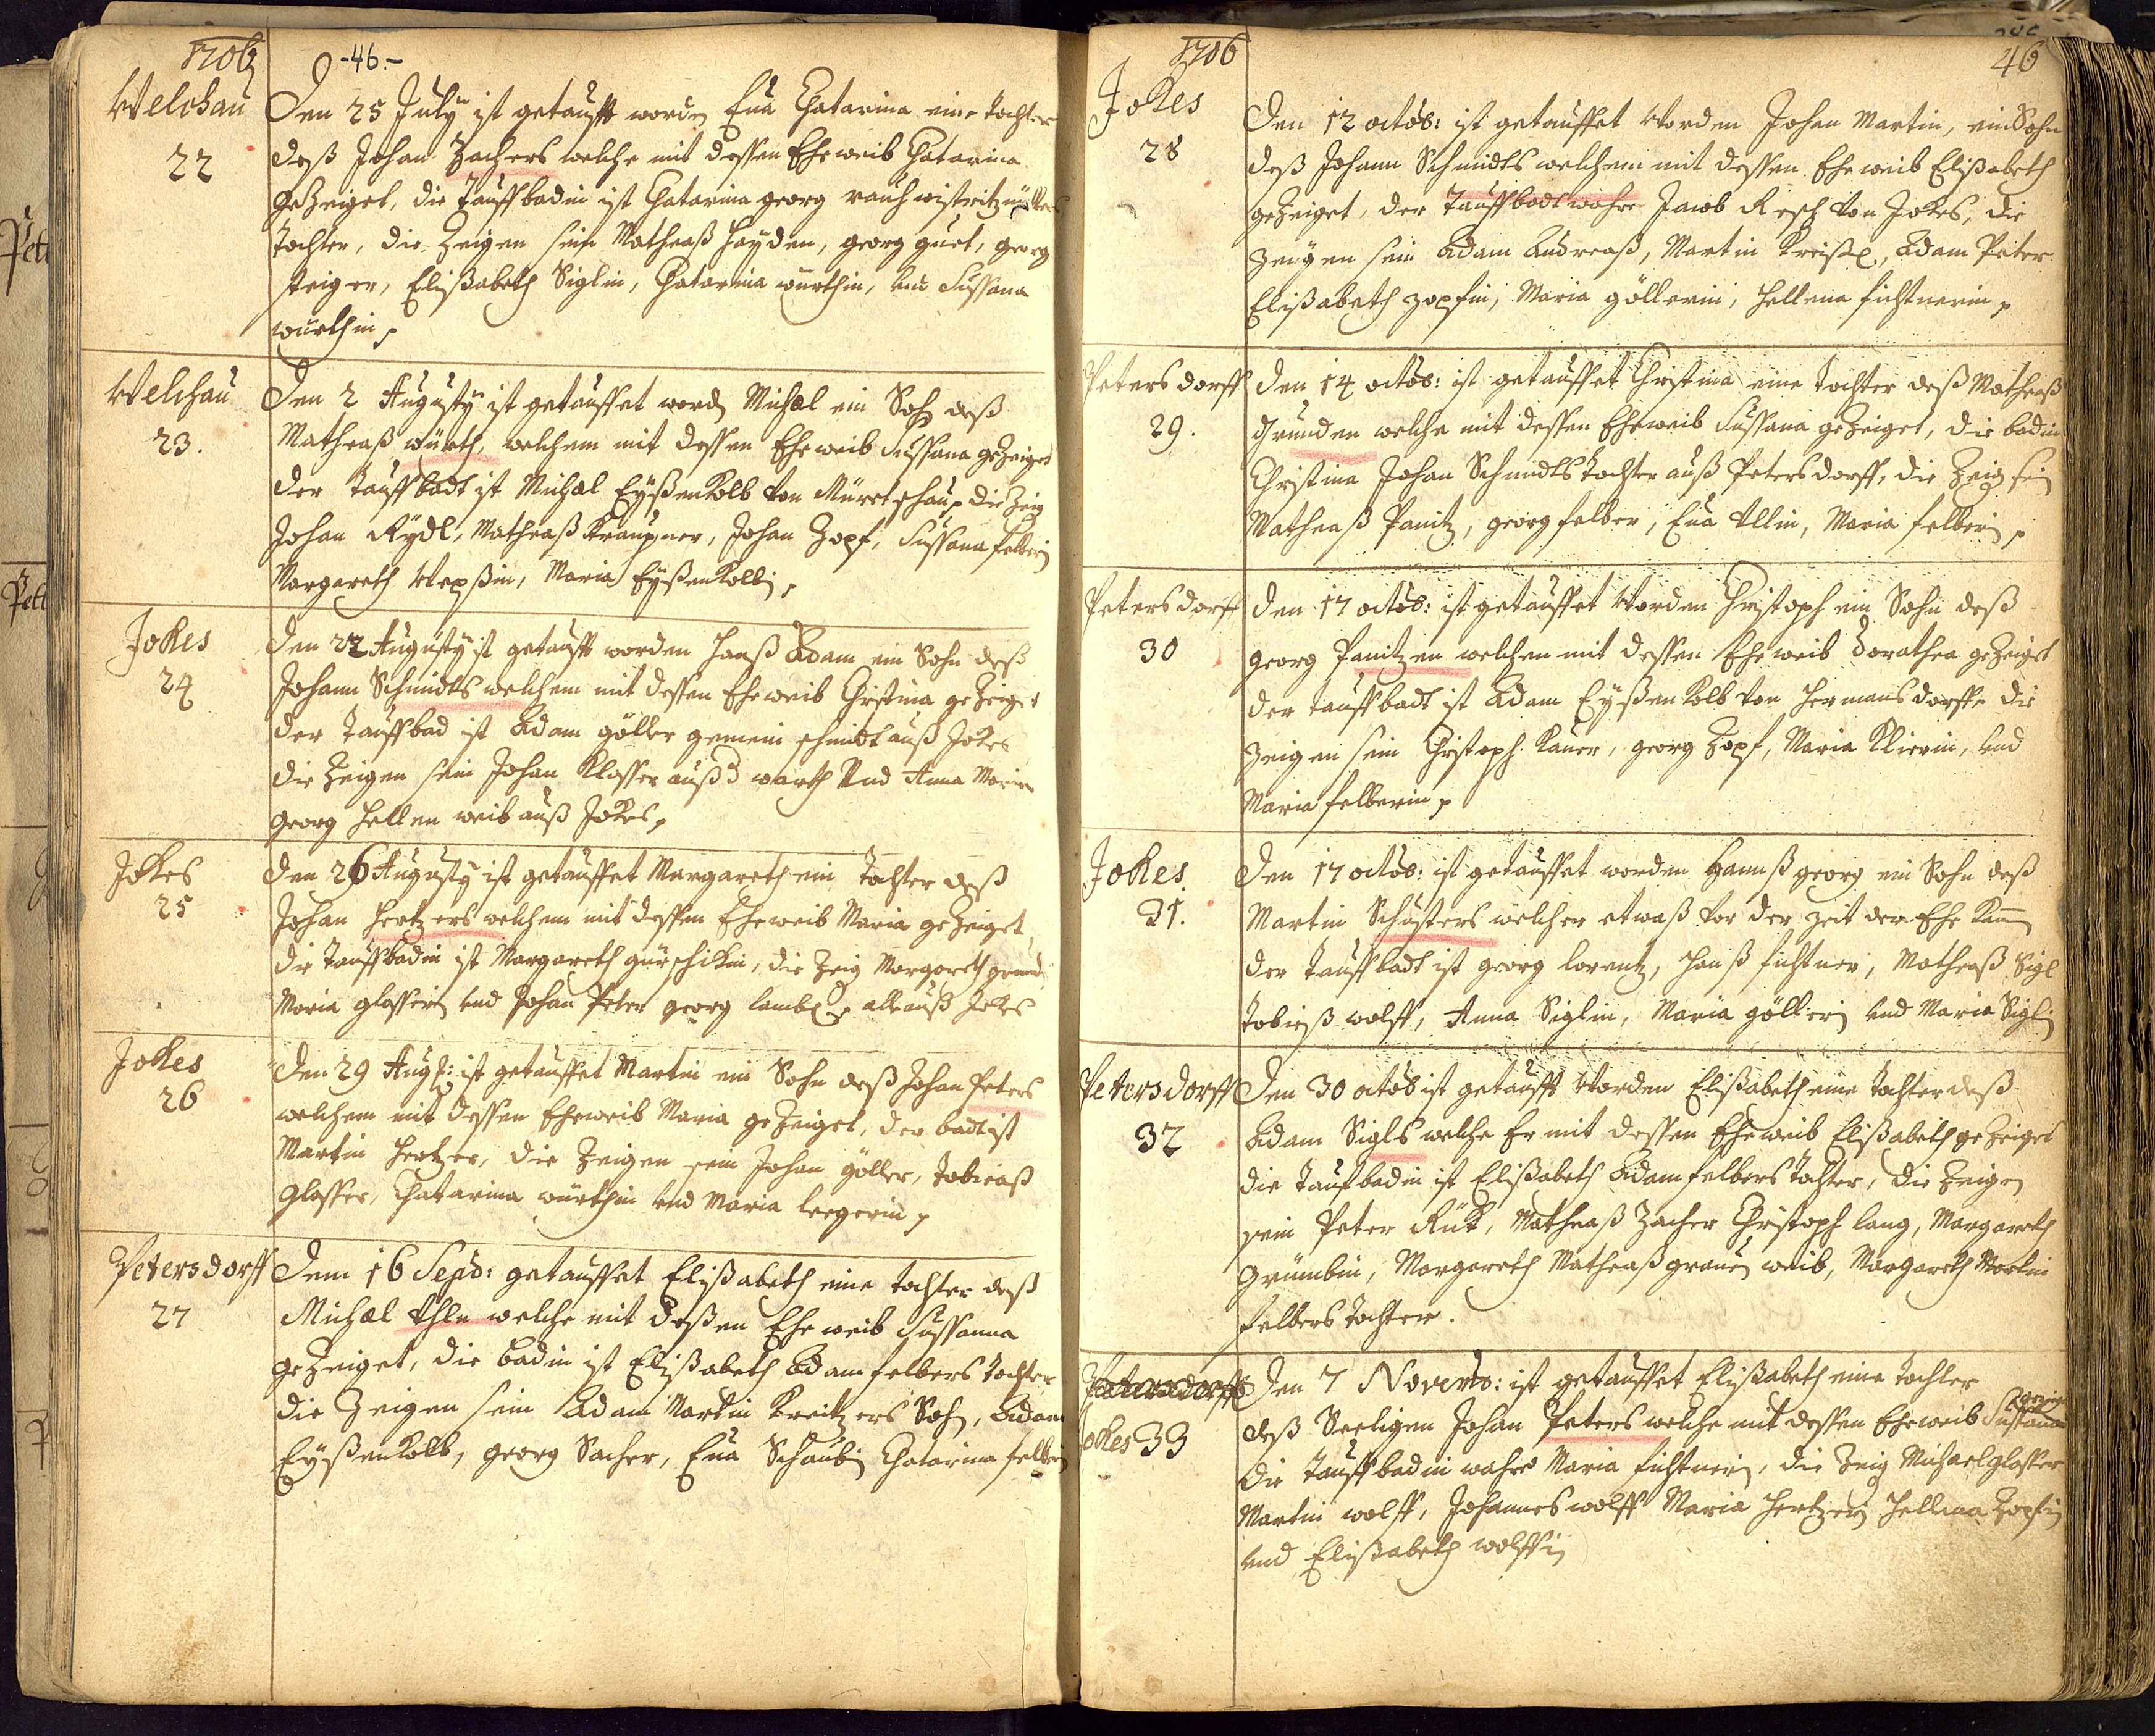 1706
-46.-
Welchau
22
Den 25 July ist getaufft worden Eua Chatarina eine tochter
deß Johan Zachers welche mit dessen Eheweib Chatarina
gezeiget, die Tauffbadin ist Chatarina georg rauch
Tochter, die Zeigen sein Matheaß Hayden, georg guet, georg
steiger, Elißabeth Siglin, Chatarina würthin, und Sussana
würthin,
Welchau
23.
Den 2 Augusty ist getauffet word Michael ein Sohn deß
Matheaß würth welchem mit dessen Eheweib Sussana gezeiget
der Tauffbadt ist Michael Eyßenkolb von die Zeig
Johan Rydl, Matheaß Kraupner, Johan Zopf, Sussana felberin
Margareth Maria Eyßenkolbin,
Jokes
24
den 22 Augusty ist getaufft worden Hanß Adam ein Sohn deß
Johann Schmidts welchem mit dessen Eheweib Christina gezeiget
der Tauffbad ist Adam göller gemein schmidt auß Jokes
die Zeigen sein Johan Klosser auß warth Und Anna Maria
georg Hellen weib auß Jokes,
Jokes
25
den 26 Augusty ist getauffet Margareth ein Tochter deß
Johan Hertzers welchem mit dessen Eheweib Maria gezeiget
die Tauffbadin ist Margareth die Zeig Margareth
Maria glosserin und Johan Peter georg alle auß Jokes
Jokes
26
Den 29 Aug: ist getauffet Martin ein Sohn deß Johan Peters
welchem mit dessen Eheweib Maria gezeiget, der badt ist
Martin Hertzer, die Zeigen sein Johan göller, Tobieaß
Glosser, Chatarina würthin und Maria
Petersdorff
27
Dem 16 Sepb: getauffet Elißabeth eine tochter deß
Michael welche mit deßen Eheweib Sussanna
gezeiget, die badin ist Elißabeth Adam felbers Tochter
die Zeigen sein Adam Martin Kreitzers Sohn, Adam
Eyßenkolb, georg Sacher, Eua Schaubin Chatarina felberin
1706
46
Jokes
28
Den 12 octob: ist getauffet Worden Johan Martin, ein Sohn
deß Johann Schmidts welchem mit dessen Eheweib Elißabeth
gezeiget, der Tauffbadt wahre Jacob Resch von Jokes, die
zeigen sein Adam Andreaß, Martin Adam Peter
Elißabeth zopfin, Maria göllerin, Hellena fichtnerin,
Petersdorff
29.
den 14 octob: ist getauffet Christina eine Tochter deß Matheaß
Grunden welche mit dessen Eheweib Sussana gezeiget, die badin
Christina Johan Schmidts Tochter auß Petersdorff, die Zeig sein
Matheaß Panitz, georg felber, Eua Maria felberin,
Petersdorff
30
den 17 octob: ist getauffet Worden Christoph ein Sohn deß
georg Panitzen welchen mit dessen Eheweib Dorathea gezeiget
der tauffbadt ist Adam Eyßenkolb von Hermansdorff, die
zeigen sein Christoph Kauer, georg Zopf, Maria Klierin, und
Maria felberin,
Jokes
31.
Den 17 octob: ist getauffet worden Hannß georg ein Sohn deß
Martin Schusters welcher etwaß vor der zeit der Ehe kam
der Tauffbadt ist georg lorentz, Hanß fichtner, Matheaß Sigl
Tobieß wolff, Anna Siglin, Maria göllerin und Maria Siglin
Petersdorff
32
Den 30 octob ist getaufft Worden Elißabeth eine Tochter deß
Adam Sigls welche Er mit dessen Eheweib Elißabeth gezeiget
die Taufbadin ist Elißabeth Adam felbers Tochter, die Zeigen
sein Peter Rük, Matheaß Zacher Christoph lang, Margareth
Margareth Matheaß weib, Margareth Martin
felbers Tochter.
Petersdorff
Jokes 33
Den 7 Novemb: ist getauffet Elißabeth eine Tochter
deß Seeligen Johan Peters welche mit dessen Eheweib Sussanna gezeigt
die Tauffbadin wahre Maria fichtnerin, die Zeig Michael glosser
Martin wolff, Johannes wolff Maria Hertzerin Hellena Zopfin
und Elißabeth wolffin